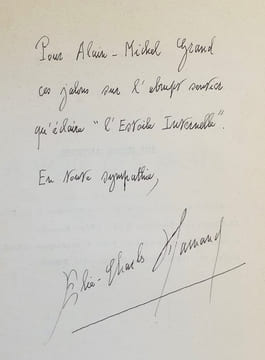 Pour Alain-Michel Grand
ces jalons sur l'abrupt sentier
qu'éclaire "l'Estoile Internelle".
En toute sympathie,
Elie-Charles Flamand